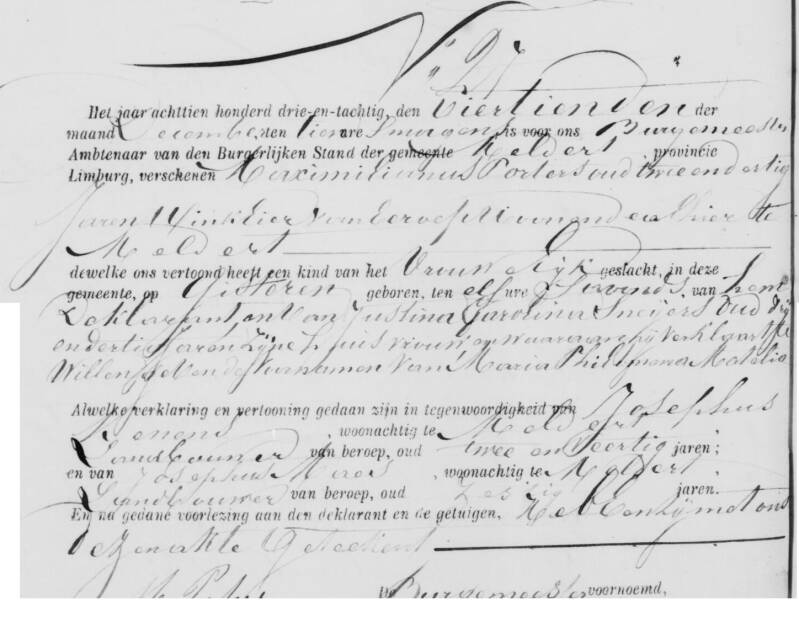 N° 27
Het jaar achttien honderd drie-en-tachtig, den Viertienden der
maand December, ten tien ure Smorgens, is voor ons Burgemeester
Ambtenaar van den Burgerlijken Stand der gemeente Meldert, provincie
Limburg, verschenen Maximilianus Porters oud twee en dertig
Jaren Winkelier van beroep Woonende alhier te
Meldert
dewelke ons vertoond heeft een kind van het Vrouwelijk geslacht, in deze
gemeente, op Gisteren geboren, ten elf ure Savonds, van hem
Deklarant en Van Justina Carolina Sneijers Oud drij
en dertig Jaren Zijne huisvrouw en waaraan hij verklaart te
Willen geven de Vurnamen Van Maria Philomena Natalia
Alwelke verklaring en vertooning gedaan zijn in tegenwoordigheid van Josephus
woonachtig te Meldert
Landbouwer van beroep, oud twee en Veertig jaren;
en van Josephus Maes, woonachtig te Meldert
Landbouwer van beroep, oud Zestig jaren.
En na gedane voorlezing aan den deklarant en de getuigen, Hebben zij met ons
deze akte Geteekent
De Burgemeester voornoemd,